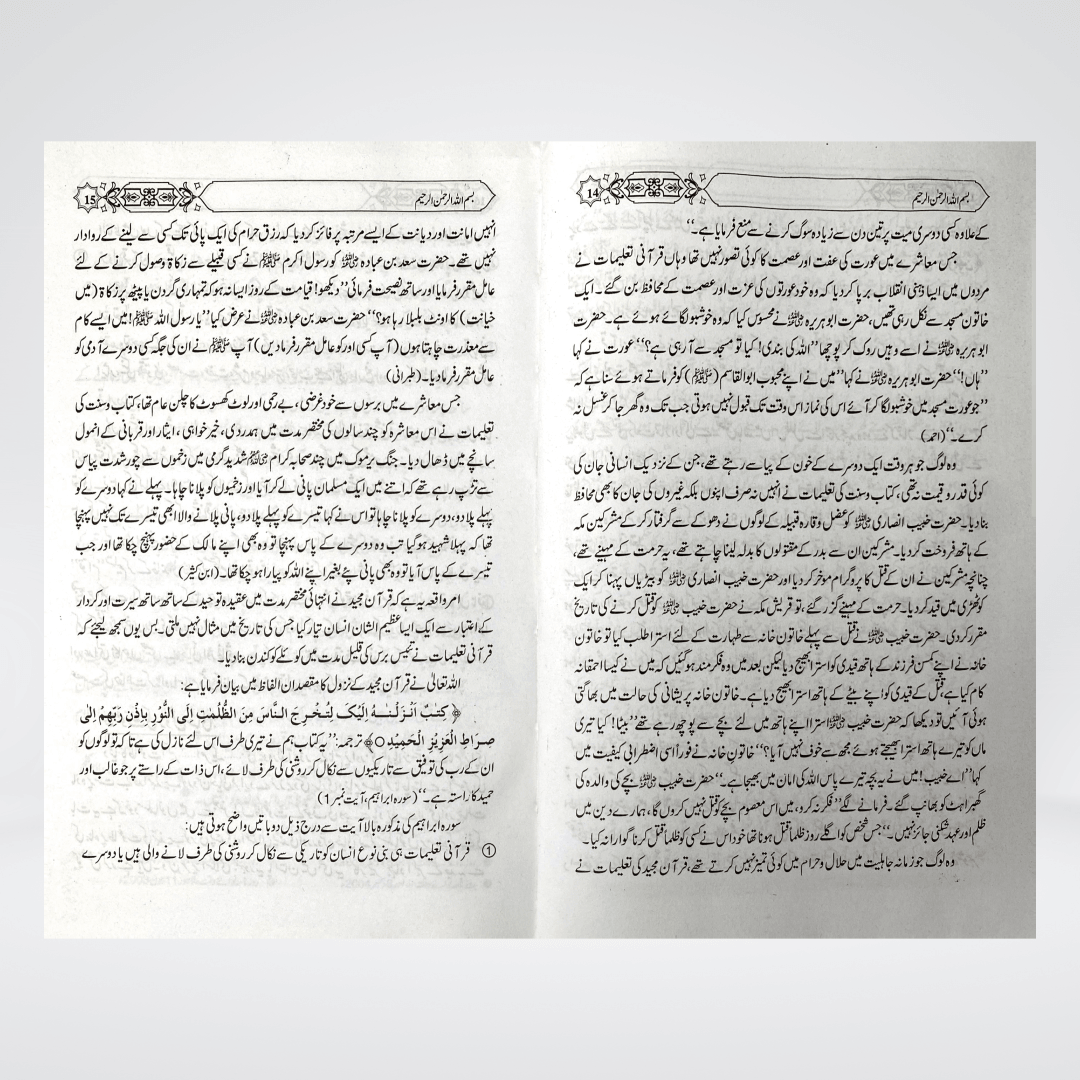 بسم اللہ الرحمٰن الرحیم
14
کے علاوہ کسی دوسری میت پر تین دن سے زیادہ سوگ کرنے سے منع فرمایا ہے۔‘‘
جس معاشرے میں عورت کی عفت اور عصمت کا کوئی تصور نہیں تھا وہاں قرآنی تعلیمات نے
مردوں میں ایسا ذہنی انقلاب برپا کر دیا کہ وہ خود عورتوں کی عزت اور عصمت کے محافظ بن گئے۔ ایک
خاتون مسجد سے نکل رہی تھیں، حضرت ابو ہریرہ رضی اللہ عنہ نے محسوس کیا کہ وہ خوشبو لگائے ہوئے ہے۔ حضرت
ابو ہریرہ رضی اللہ عنہ نے اسے وہیں روک کر پوچھا ’’اللہ کی بندی! کیا تو مسجد سے آ رہی ہے؟‘‘ عورت نے کہا
’’ہاں!‘‘ حضرت ابو ہریرہ رضی اللہ عنہ نے کہا ’’میں نے اپنے محبوب ابو القاسم (ﷺ) کو فرماتے ہوئے سنا ہے کہ
’’جو عورت مسجد میں خوشبو لگا کر آئے اس کی نماز اس وقت تک قبول نہیں ہوتی جب تک وہ گھر جا کر غسل نہ
کرے۔‘‘ (احمد)
وہ لوگ جو ہر وقت ایک دوسرے کے خون کے پیاسے رہتے تھے، جن کے نزدیک انسانی جان کی
کوئی قدر و قیمت نہ تھی، کتاب و سنت کی تعلیمات نے انہیں نہ صرف اپنوں بلکہ غیروں کی جان کا بھی محافظ
بنا دیا۔ حضرت خبیب انصاری رضی اللہ عنہ کو عضل و قارہ قبیلہ کے لوگوں نے دھوکے سے گرفتار کر کے مشرکین مکہ
کے ہاتھ فروخت کر دیا۔ مشرکین ان سے بدر کے مقتولوں کا بدلہ لینا چاہتے تھے، یہ حرمت کے مہینے تھے،
چنانچہ مشرکین نے ان کے قتل کا پروگرام مؤخر کر دیا اور حضرت خبیب انصاری رضی اللہ عنہ کو بیڑیاں پہنا کر ایک
کوٹھڑی میں قید کر دیا۔ حرمت کے مہینے گزر گئے، تو قریش مکہ نے حضرت خبیب رضی اللہ عنہ کو قتل کرنے کی تاریخ
مقرر کر دی۔ حضرت خبیب رضی اللہ عنہ نے قتل سے پہلے خاتون خانہ سے طہارت کے لئے استرا طلب کیا تو خاتون
خانہ نے اپنے کمسن فرزند کے ہاتھ قیدی کو استرا بھیج دیا لیکن بعد میں وہ فکر مند ہو گئیں کہ میں نے کیسا احمقانہ
کام کیا ہے، قتل کے قیدی کو اپنے بیٹے کے ہاتھ استرا بھیج دیا ہے۔ خاتون خانہ پریشانی کی حالت میں بھاگتی
ہوئی آئیں تو دیکھا کہ حضرت خبیب رضی اللہ عنہ استرا اپنے ہاتھ میں لئے بچے سے پوچھ رہے تھے ’’بیٹا! کیا تیری
ماں کو تیرے ہاتھ استرا بھیجتے ہوئے مجھ سے خوف نہیں آیا؟‘‘ خاتون خانہ نے فوراً اسی اضطرابی کیفیت میں
کہا ’’اے خبیب! میں نے یہ بچہ تیرے پاس اللہ کی امان میں بھیجا ہے۔‘‘ حضرت خبیب رضی اللہ عنہ بچے کی والدہ کی
گھبراہٹ کو بھانپ گئے۔ فرمانے لگے ’’فکر نہ کرو، میں اس معصوم بچے کو قتل نہیں کروں گا، ہمارے دین میں
ظلم اور عہد شکنی جائز نہیں۔‘‘ جس شخص کو اگلے روز ظلماً قتل ہونا تھا خود اس نے کسی کو ظلماً قتل کرنا گوارا نہ کیا۔
وہ لوگ جو زمانہ جاہلیت میں حلال و حرام میں کوئی تمیز نہیں کرتے تھے، قرآن مجید کی تعلیمات نے
بسم اللہ الرحمٰن الرحیم
15
انہیں امانت اور دیانت کے ایسے مرتبہ پر فائز کر دیا کہ رزق حرام کی ایک پائی تک کسی سے لینے کے روادار
نہیں تھے۔ حضرت سعد بن عبادہ رضی اللہ عنہ کو رسول اکرم ﷺ نے کسی قبیلے سے زکاۃ وصول کرنے کے لئے
عامل مقرر فرمایا اور ساتھ نصیحت فرمائی ’’دیکھو! قیامت کے روز ایسا نہ ہو کہ تمہاری گردن یا پیٹھ پر زکاۃ (میں
خیانت) کا اونٹ بلبلا رہا ہو؟‘‘ حضرت سعد بن عبادہ رضی اللہ عنہ نے عرض کیا ’’یا رسول اللہ ﷺ! میں ایسے کام
سے معذرت چاہتا ہوں (آپ کسی اور کو عامل مقرر فرما دیں) آپ ﷺ نے ان کی جگہ کسی دوسرے آدمی کو
عامل مقرر فرما دیا۔ (طبرانی)
جس معاشرے میں برسوں سے خود غرضی، بے رحمی اور لوٹ کھسوٹ کا چلن عام تھا، کتاب و سنت کی
تعلیمات نے اس معاشرہ کو چند سالوں کی مختصر مدت میں ہمدردی، خیر خواہی، ایثار اور قربانی کے انمول
سانچے میں ڈھال دیا۔ جنگ یرموک میں چند صحابہ کرام رضی اللہ عنہم شدید گرمی میں زخموں سے چور شدت پیاس
سے تڑپ رہے تھے کہ اتنے میں ایک مسلمان پانی لے کر آیا اور زخمیوں کو پلانا چاہا۔ پہلے نے کہا دوسرے کو
پہلے پلا دو، دوسرے کو پلانا چاہا تو اس نے کہا تیسرے کو پہلے پلا دو، پانی پلانے والا ابھی تیسرے تک نہیں پہنچا
تھا کہ پہلا شہید ہو گیا تب وہ دوسرے کے پاس پہنچا تو وہ بھی اپنے مالک کے حضور پہنچ چکا تھا اور جب
تیسرے کے پاس آیا تو وہ بھی پانی پئے بغیر اپنے اللہ کو پیارا ہو چکا تھا۔ (ابن کثیر)
امر واقعہ یہ ہے کہ قرآن مجید نے انتہائی مختصر مدت میں عقیدہ توحید کے ساتھ ساتھ سیرت اور کردار
کے اعتبار سے ایک ایسا عظیم الشان انسان تیار کیا جس کی تاریخ میں مثال نہیں ملتی۔ بس یوں سمجھ لیجئے کہ
قرآنی تعلیمات نے تئیس برس کی قلیل مدت میں کوئلے کو کندن بنا دیا۔
اللہ تعالیٰ نے قرآن مجید کے نزول کا مقصد ان الفاظ میں بیان فرمایا ہے:
﴿ كِتٰبٌ اَنْزَلْنٰهُ اِلَيْكَ لِتُخْرِجَ النَّاسَ مِنَ الظُّلُمٰتِ اِلَى النُّوْرِ بِاِذْنِ رَبِّهِمْ اِلٰى
صِرَاطِ الْعَزِيْزِ الْحَمِيْدِ ○﴾ ترجمہ: ’’یہ کتاب ہم نے تیری طرف اس لئے نازل کی ہے تاکہ تو لوگوں کو
ان کے رب کی توفیق سے تاریکیوں سے نکال کر روشنی کی طرف لائے، اس ذات کے راستے پر جو غالب اور
حمید کا راستہ ہے۔‘‘ (سورہ ابراہیم، آیت نمبر 1)
سورہ ابراہیم کی مذکورہ بالا آیت سے درج ذیل دو باتیں واضح ہوتی ہیں:
① قرآنی تعلیمات ہی بنی نوع انسان کو تاریکی سے نکال کر روشنی کی طرف لانے والی ہیں یا دوسرے